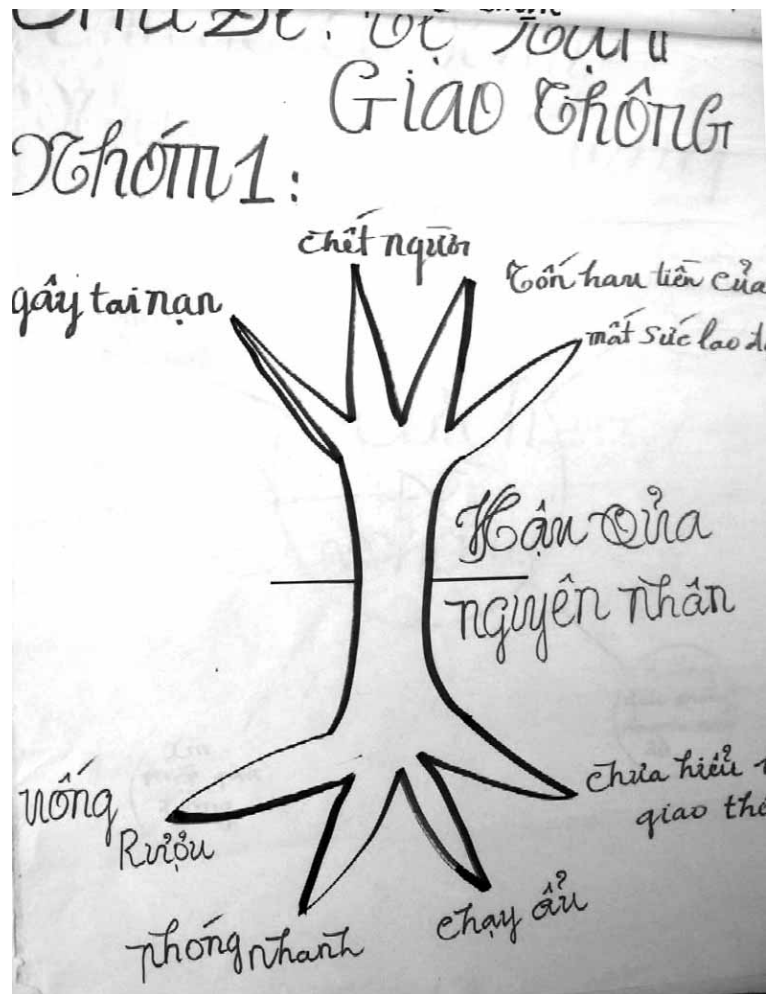 Chủ Đề: Về Nạn
Giao Thông
Nhóm 1:
chết người
gây tai nạn
Tốn hau tiền của
mất sức lao
Hậu Qủa
nguyên nhân
uống
Rượu
phóng nhanh
chạy ẩu
chưa hiểu
giao